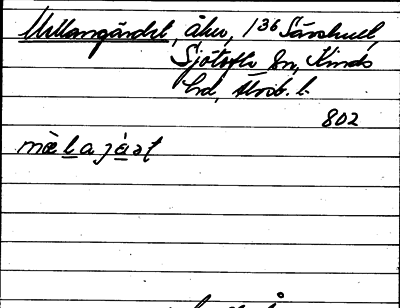 Mellangärdet, åker, 1³⁶ Särshult,
Sjötofta sn, Kinds
hd, Älvsb. l.
802
mæ̀lajáət